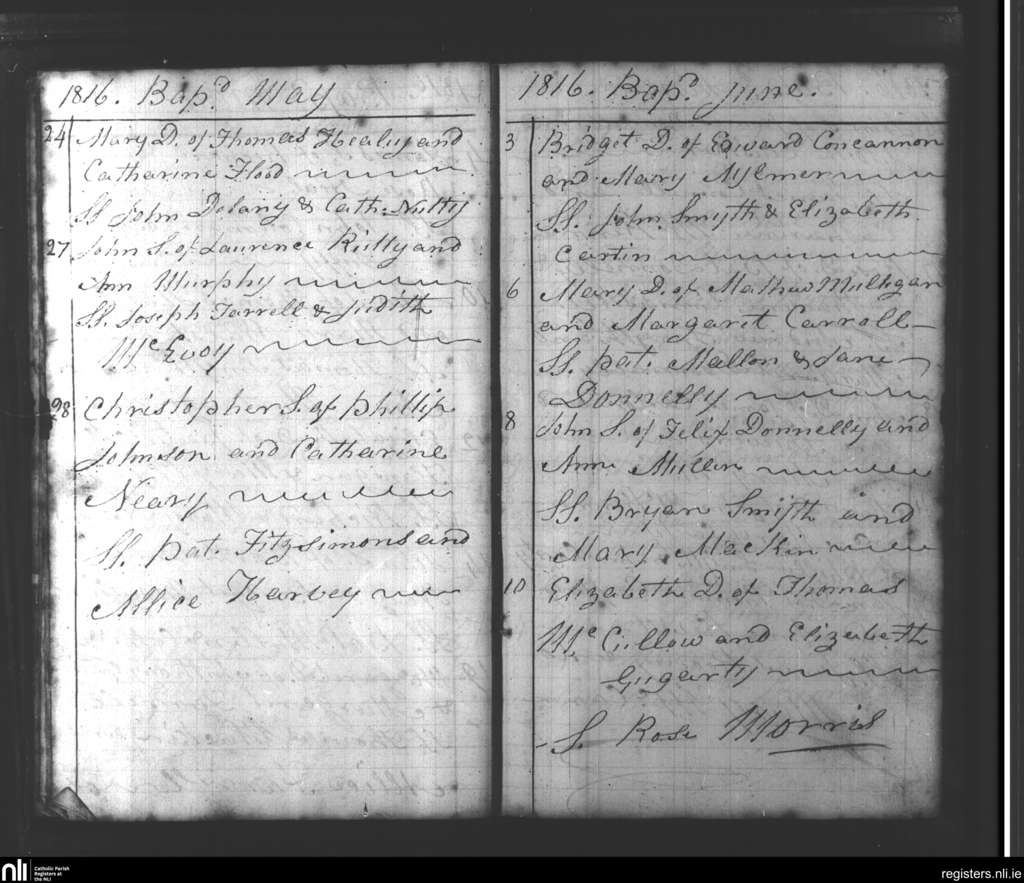 1816. Bap.d May
24 Mary D. of Thomas Healy and
Catharine Flood
SS John Delany & Cath: Nulty
27 John S. of Laurence Rielly and
Ann Murphy
SS. Joseph Farrell & Judith
McEvoy
28 Christopher S. of Phillip
Johnson and Catharine
Neary
SS. Pat. Fitzsimons and
Allice Harvey
1816. Bap.d June.
3 Bridget D. of Edward Concannon
and Mary Aylmer
SS. John Smyth & Elizabeth
Cartin
6 Mary D. of Mathew Mulligan
and Margaret Carroll
SS. Pat. Mallon & Jane
Donnelly
8 John S. of Felix Donnelly and
Ann Mullen
SS. Bryan Smijth and
Mary Mackin
10 Elizabeth D. of Thomas
Mc Cullow and Elizabeth
Gugarty
S. Rose Morris
nli Catholic Parish
Registers at
the NLI
registers.nli.ie
registers.nli.ie